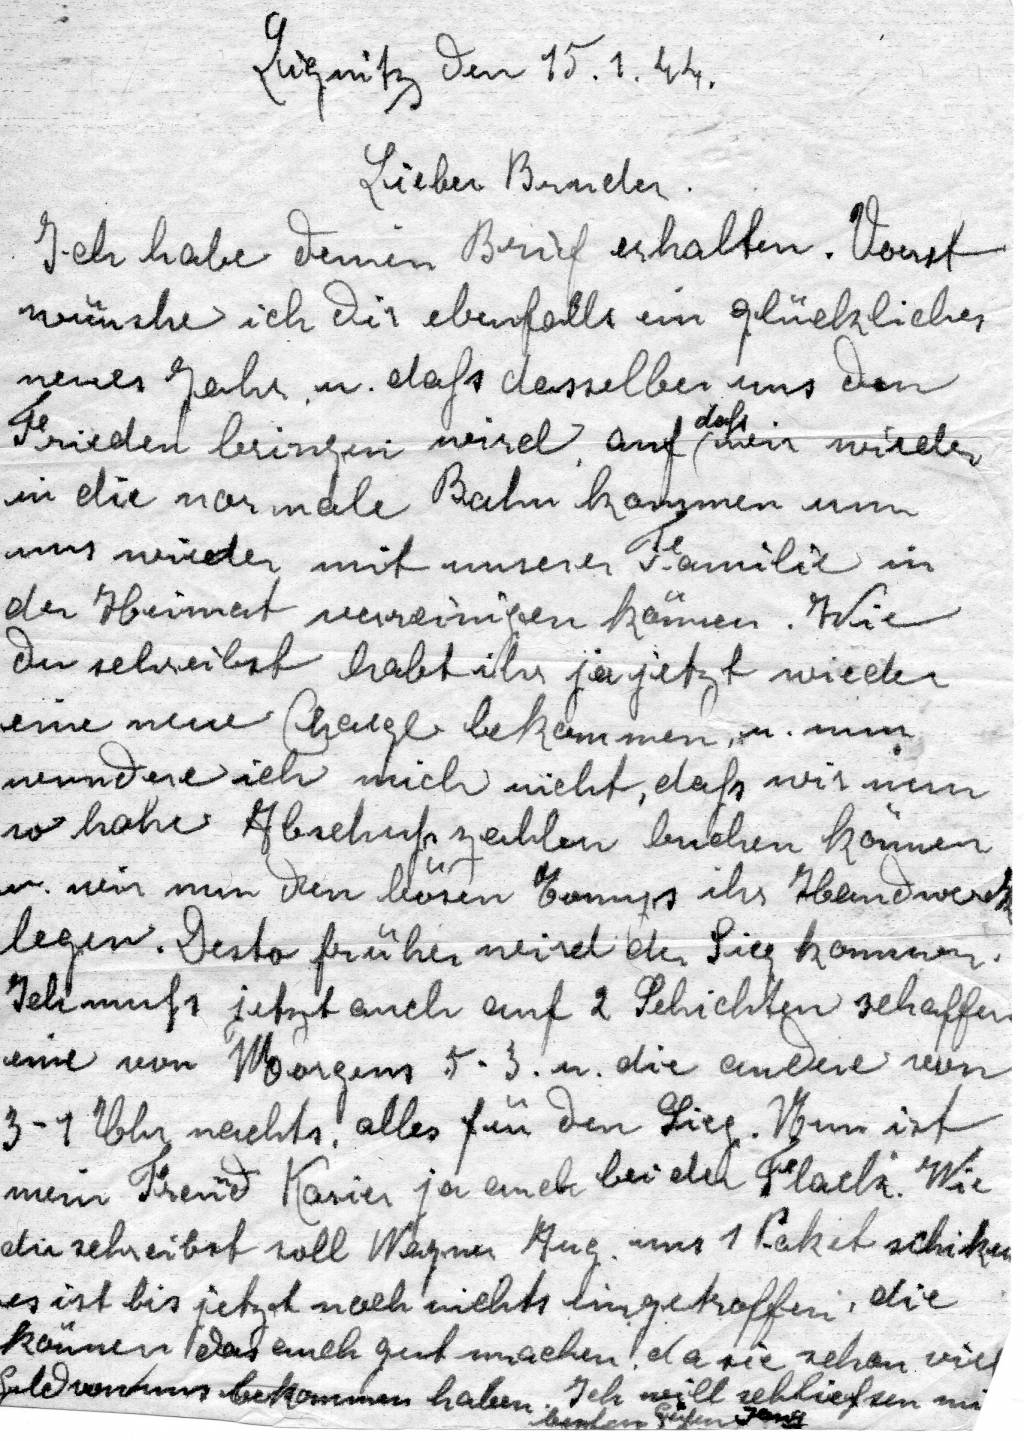 Liegnitz den 15.1.44.
Lieber Bruder.
Ich habe deinen Brief erhalten. Vorerst
wünshe ich dir ebenfalls ein glückliches
neues Jahr, u. dass dasselbe uns den
Frieden bringen wird, auf dass wir wieder
in die normale Bahn kommen um
uns wieder mit unserer Familie in
der Heimat vereinigen können. Wie
du schreibst habt ihr ja jetzt wieder
eine neue Charge bekommen, u. nun
wundere ich mich nicht, dass wir nun
so hohe Abschusszahlen buchen können
u. wir nun den bösen Tomys ihr Handwerk
legen. Desto früher wird der Sieg kommen.
Ich muss jetzt auch auf 2 Schichten schaffen
eine von Morgens 5-3. u. die andere von
3-1 Uhr nachts, alles für den Sieg. Nun ist
mein Freund Xavier ja auch bei der Flack. Wie
du schreibst soll Wagner Aug. uns 1 Paket schiken
es ist bis jetzt noch nichts eingetroffen, die
können das auch gut machen, da sie schon viel
Geld von uns bekommen haben. Ich will schliessen mi
besten Grüssen